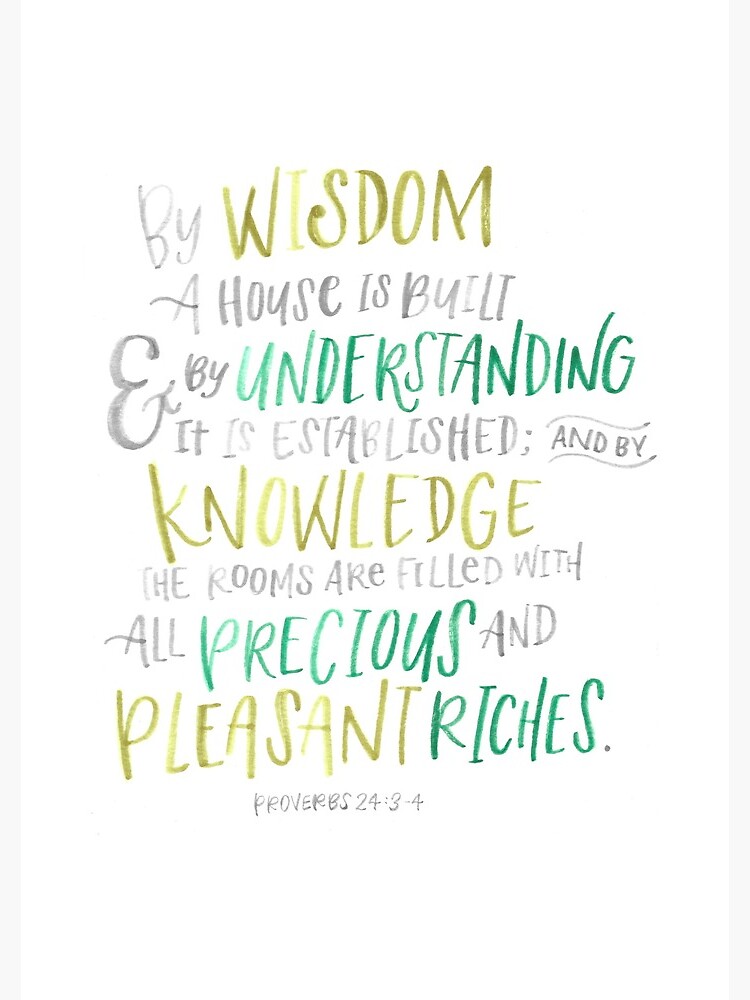 By WISDOM
A HOUSE IS BUILT
& by UNDERSTANDING
It IS ESTABLISHED; AND BY
KNOWLEDGE
THE ROOMS ARE FILLED WITH
ALL PRECIOUS AND
PLEASANT RICHES.
PROVERBS 24:3-4